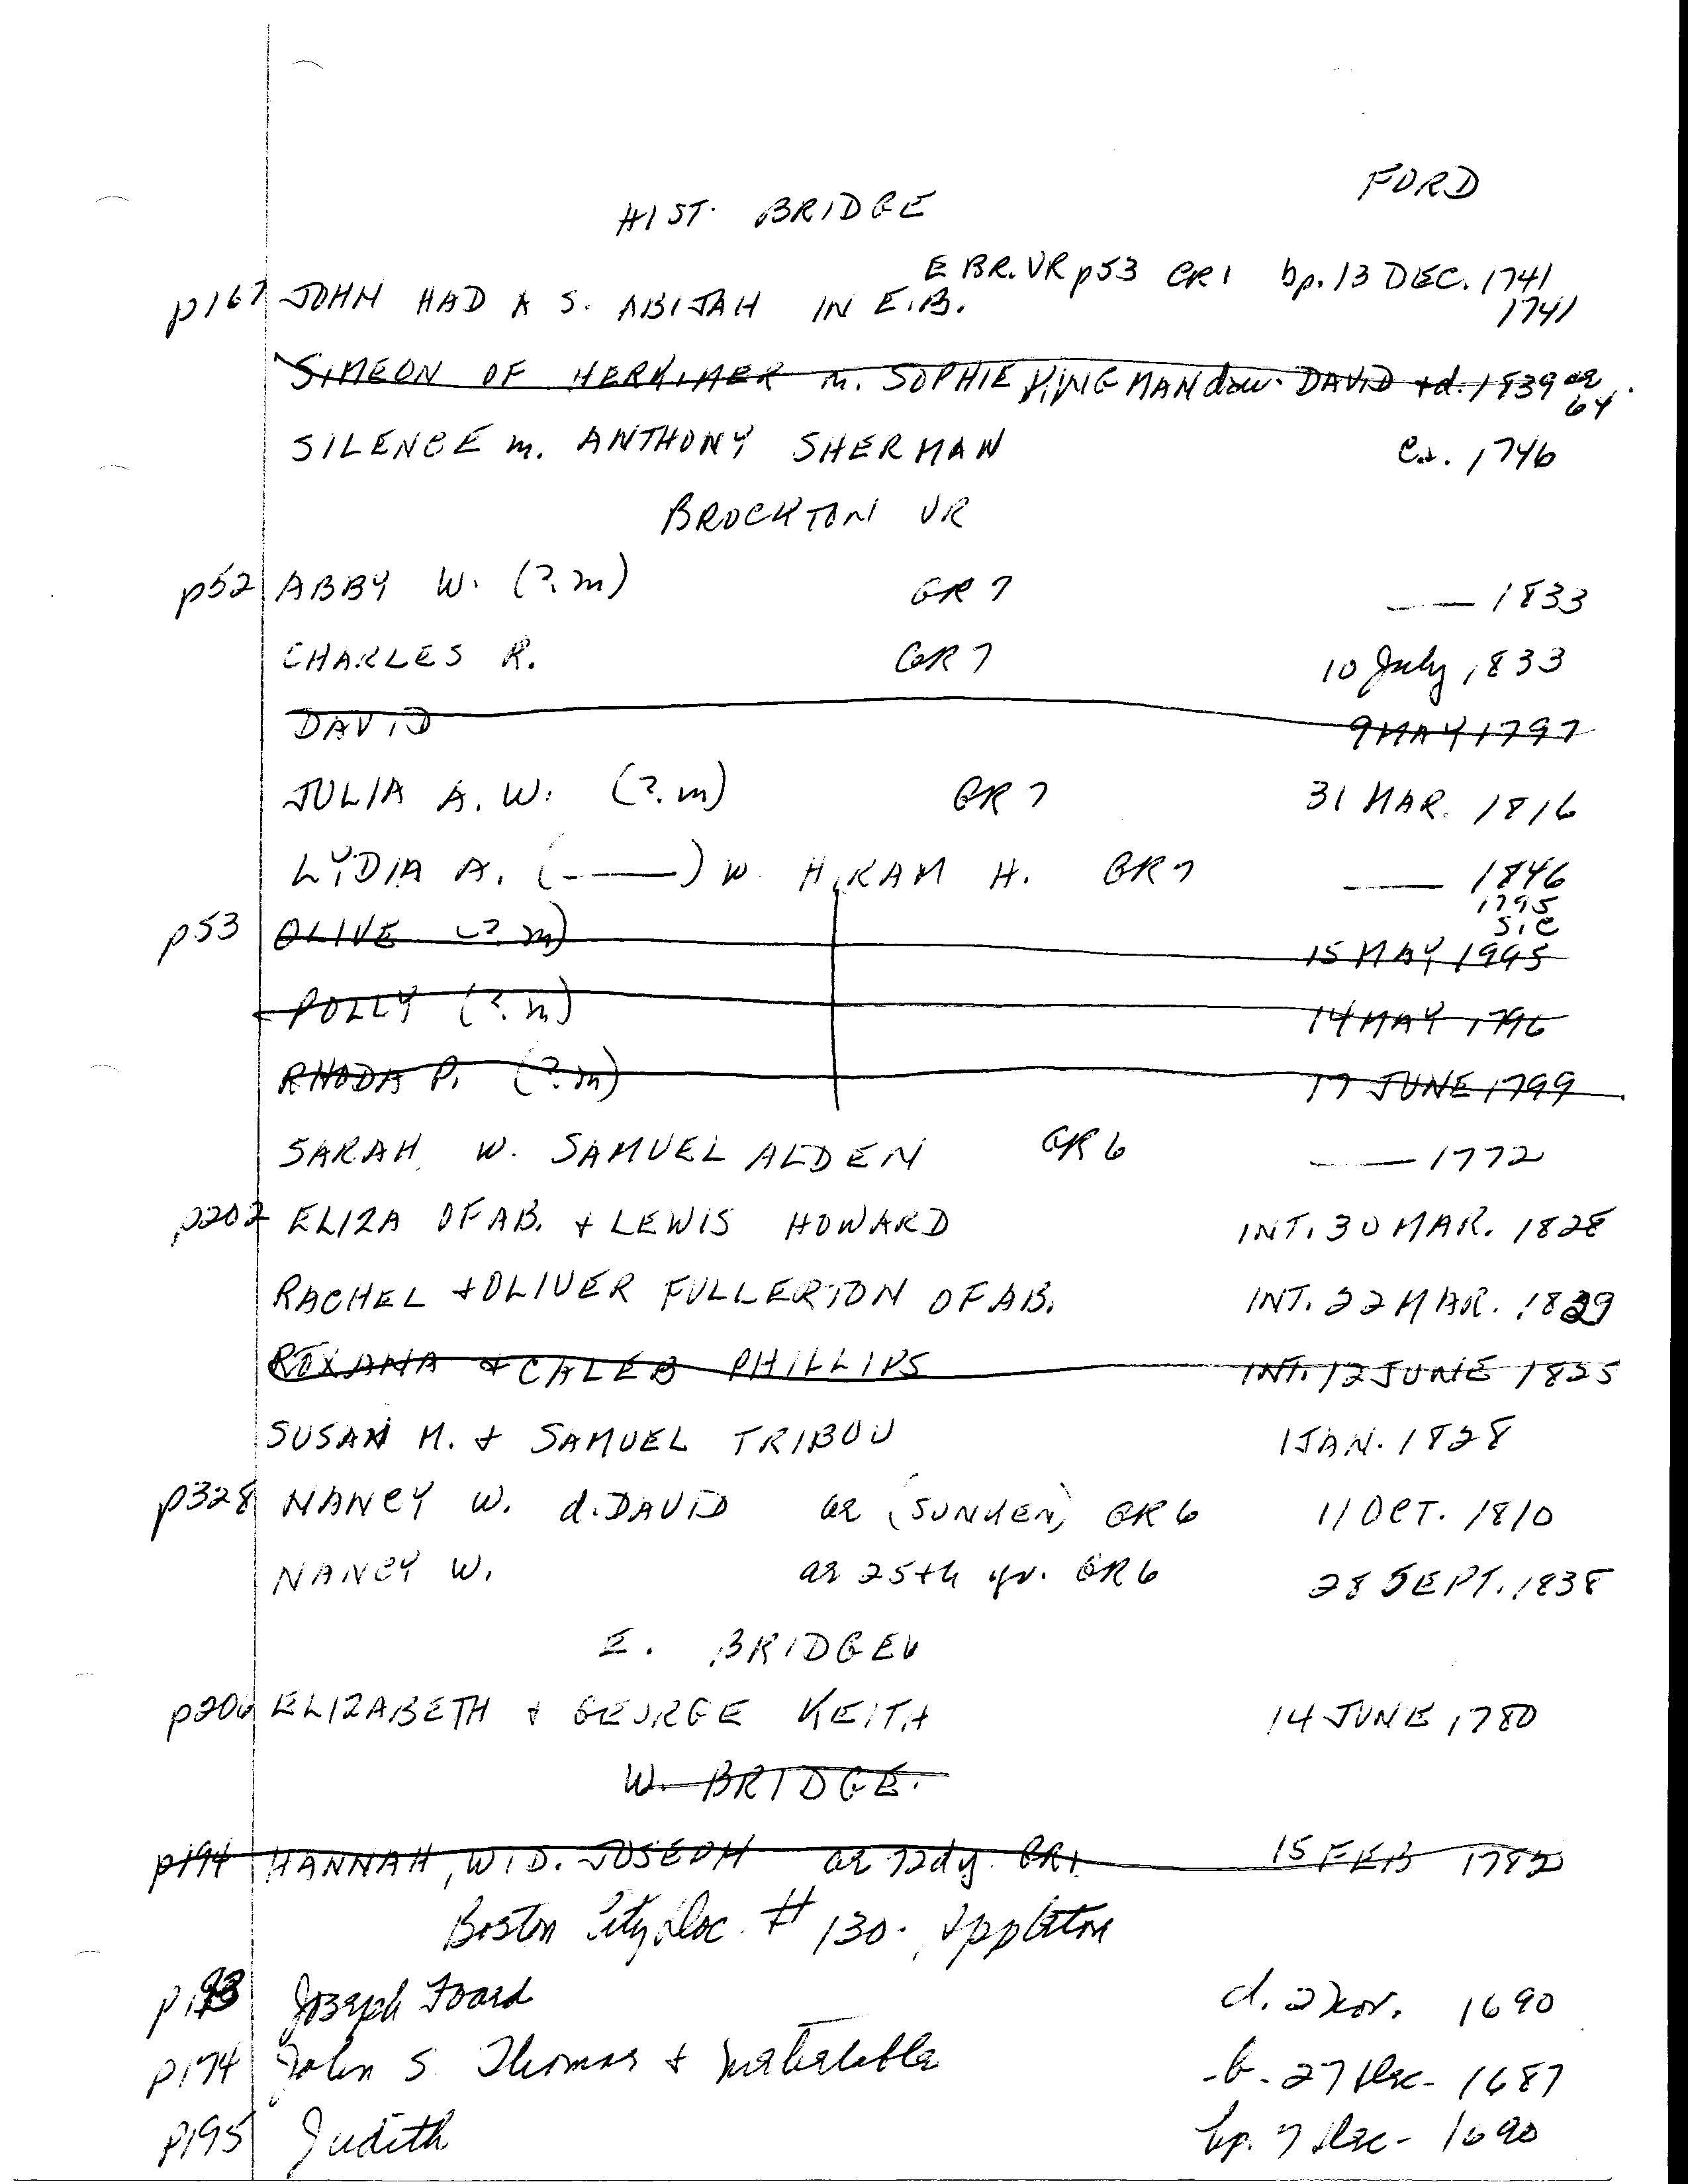 FORD
HIST. BRIDGE
E BR. VR p53 CR1 bp. 13 DEC. 1741
p167 JOHN HAD A S. ABIJAH IN E.B. 1741
SIMEON OF HERKIMER m. SOPHIE KINGMAN dau. DAVID + d. 1839 ae 64
SILENCE m. ANTHONY SHERMAN ca. 1746
BROCKTON VR
p52 ABBY W. (?.m) GR7 — 1833
CHARLES R. GR7 10 July 1833
DAVID 9 MAY 1797
JULIA A. W. (?.m) GR7 31 MAR. 1816
LYDIA A. (——) W HIRAM H. GR7 —— 1846
1795
sic
p53 OLIVE (? m) 15 MAY 1995
POLLY (?. m) 14 MAY 1796
RHODA P. (?.m) 17 JUNE 1799
SARAH W. SAMUEL ALDEN GR6 —— 1772
p202 ELIZA OF AB. + LEWIS HOWARD INT. 30 MAR. 1828
RACHEL + OLIVER FULLERTON OF AB. INT. 22 MAR. 1829
ROXANA + CALEB PHILLIPS INT. 12 JUNE 1825
SUSAN M. + SAMUEL TRIBOU 1 JAN. 1828
p328 NANCY W. d. DAVID ae (SUNKEN) GR6 11 OCT. 1810
NANCY W. ae 25th yr. GR6 28 SEPT. 1838
E. BRIDGEW
p206 ELIZABETH + GEORGE KEITH 14 JUNE 1780
W. BRIDGE.
p194 HANNAH, WID. JOSEPH ae 72 dy. CR1. 15 FEB 1782
Boston City Doc. # 130. Appleton
Joseph Foard d. 2 Nov. 1690
p174 John S. Thomas + Mehetable b. 27 Dec - 1687
p195 Judith bp. 7 Dec - 1690